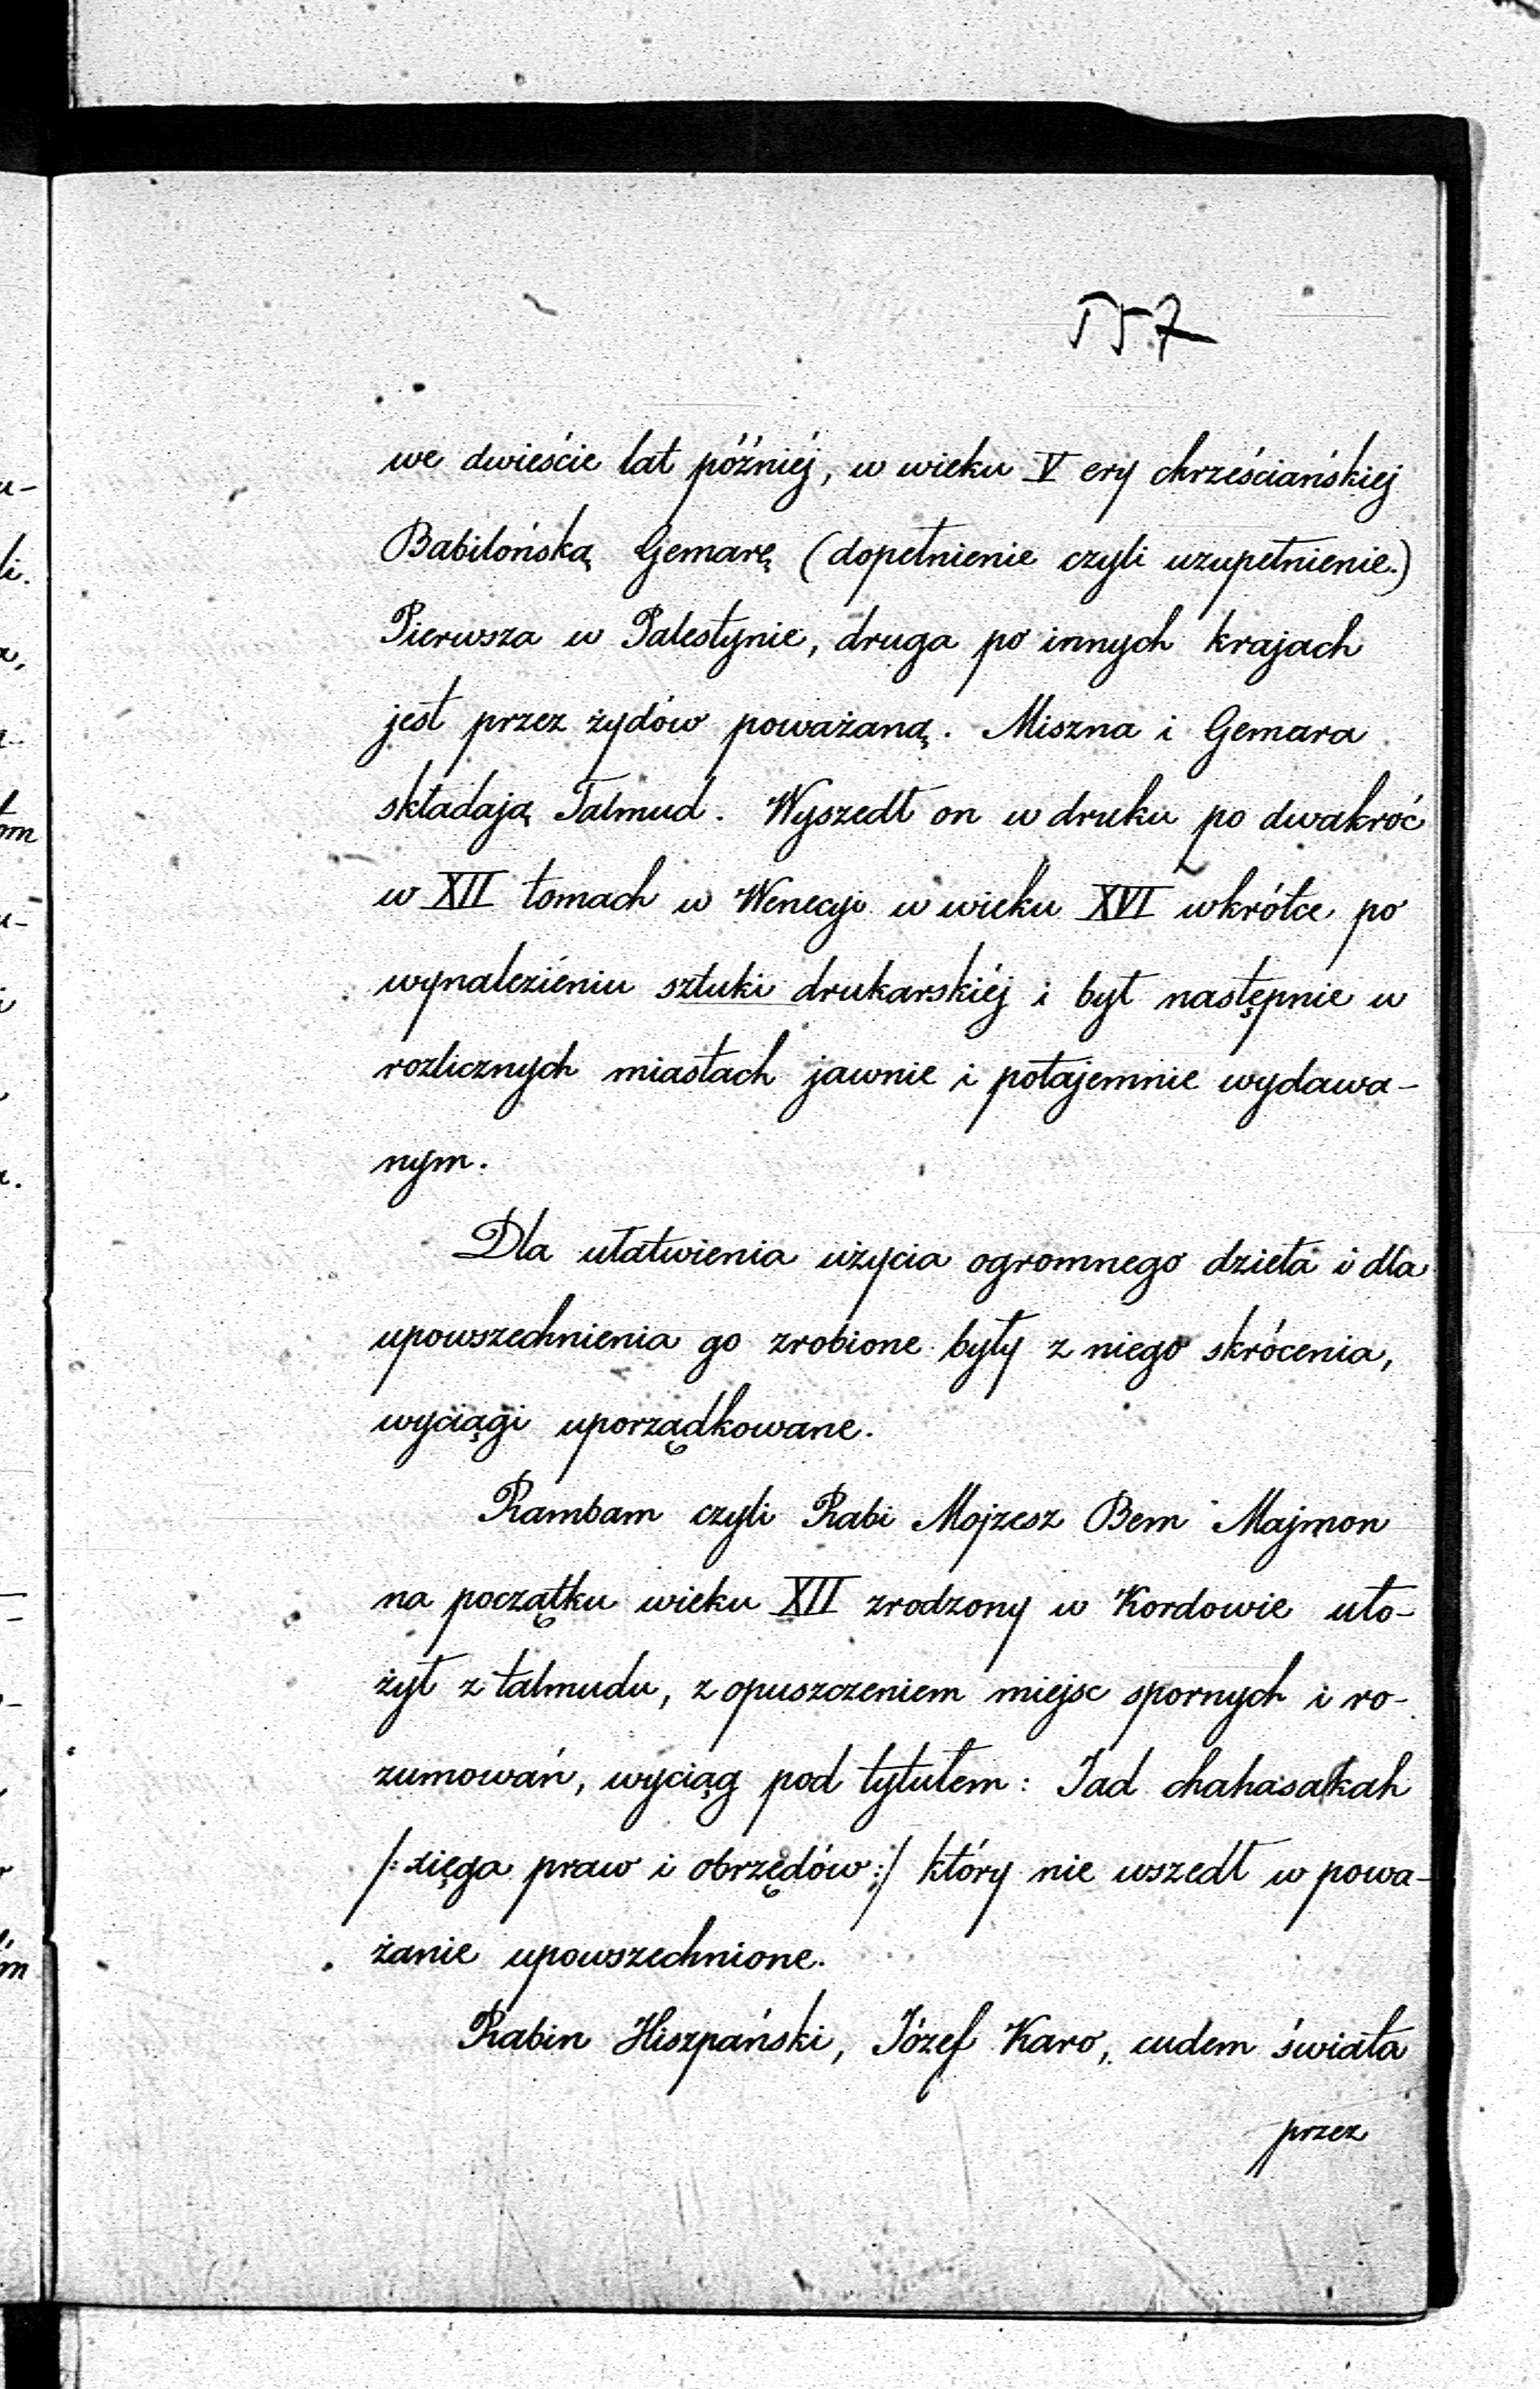 557
we dwieście lat późniéj, w wieku V ery chrześciańskiej
Babilońską Gemarę (dopełnienie czyli uzupełnienie.)
Pierwsza w Palestynie, druga po innych krajach
jest przez żydów poważaną. Miszna i Gemara
składają Talmud. Wyszedł on w druku po dwakroć
w XII tomach w Wenecyi w wieku XVI wkrótce po
wynalezieniu sztuki drukarskiéj i był następnie w
rozlicznych miastach jawnie i potajemnie wydawa-
nym.
Dla ułatwienia użycia ogromnego dzieła i dla
upowszechnienia go zrobione były z niego skrócenia,
wyciągi uporządkowane.
Rambam czyli Rabi Mojzesz Bem Majmon
na początku wieku XII zrodzony w Kordowie uło-
żył z talmudu, z opuszczeniem miejsc spornych i ro-
zumowań, wyciąg pod tytułem: Jad chahasakah
/:xięga praw i obrzędów:/ który nie wszedł w powa-
żanie upowszechnione.
Rabin Hiszpański, Józef Karo, cudem świata
przez